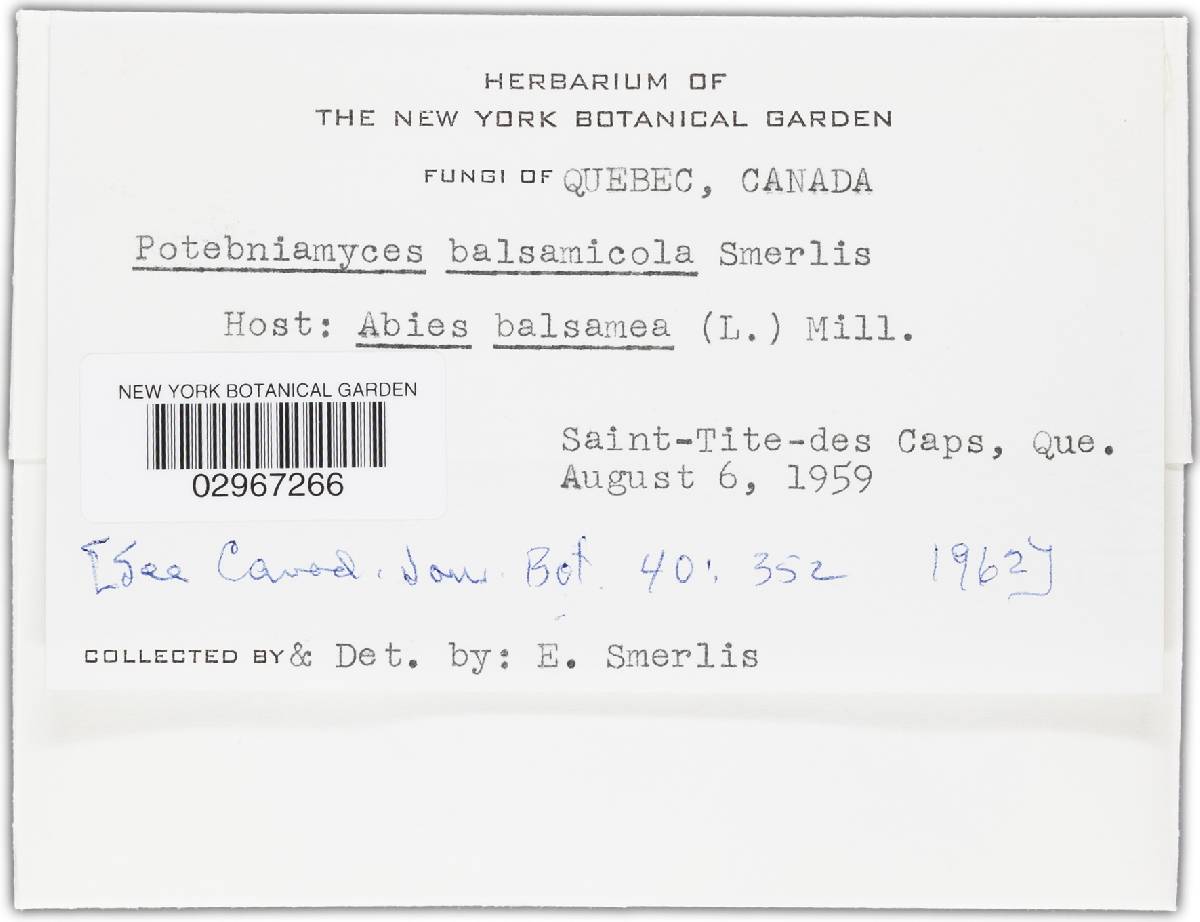 HERBARIUM OF
THE NEW YORK BOTANICAL GARDEN
FUNGI OF QUEBEC, CANADA
Potebniamyces balsamicola Smerlis
Host: Abies balsamea (L.) Mill.
NEW YORK BOTANICAL GARDEN
02967266
Saint-Tite-des Caps, Que.
August 6, 1959
[See Canad. Jour. Bot. 40: 352 1962]
COLLECTED BY & Det. by: E. Smerlis